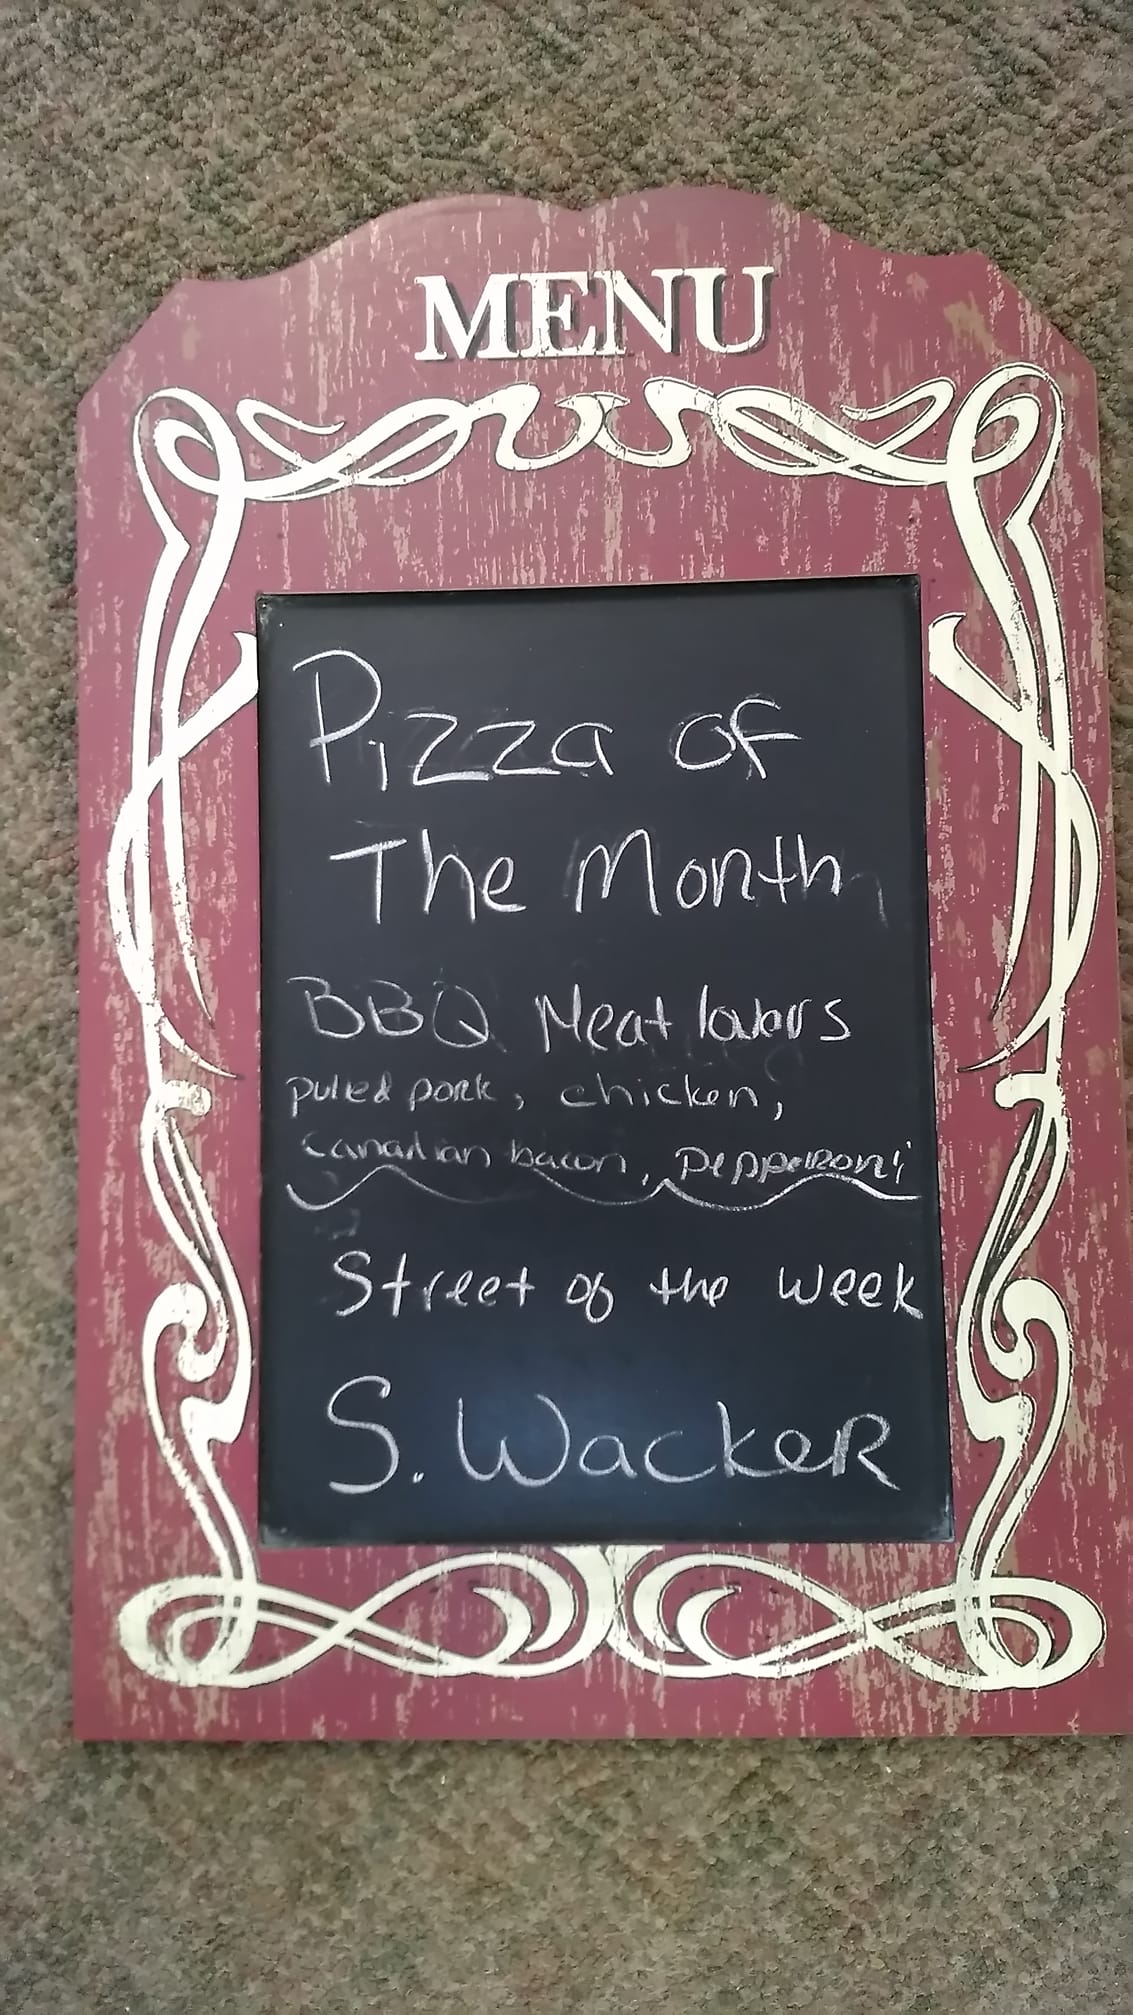 MENU
Pizza of
The Month
BBQ Meat lovers
puled pork, chicken,
Canadian bacon, pepperoni
Street of the week
S. Wacker